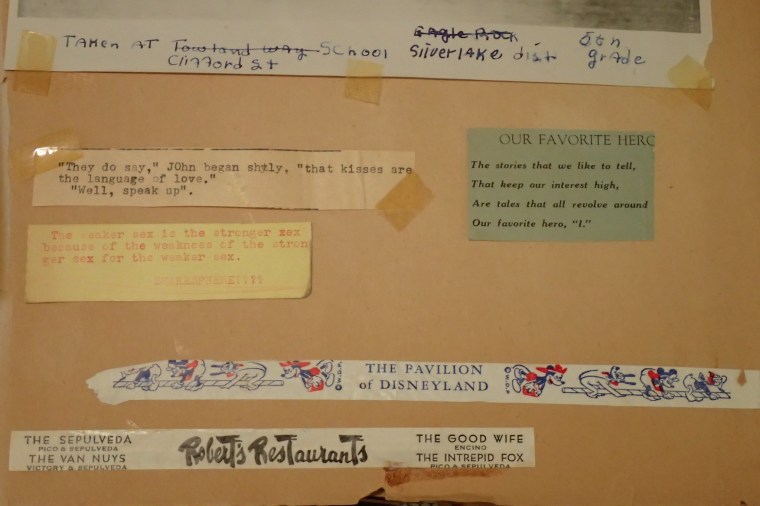 TAKEN AT Towland way SCHOOl Eagle Rock 5th
Clifford St SilverlAKe dist grAde
"They do say," JOhn began shyly, "that kisses are
the language of love."
"Well, speak up".
OUR FAVORITE HERO
The stories that we like to tell,
That keep our interest high,
Are tales that all revolve around
Our favorite hero, "I."
The weaker sex is the stronger sex
because of the weakness of the stron
ger sex for the weaker sex.
THE PAVILION
of DISNEYLAND
W.D.P.
W.D.P.
THE SEPULVEDA
PICO & SEPULVEDA
THE VAN NUYS
VICTORY & SEPULVEDA
Robert's Restaurants
THE GOOD WIFE
ENCINO
THE INTREPID FOX
PICO & SEPULVEDA